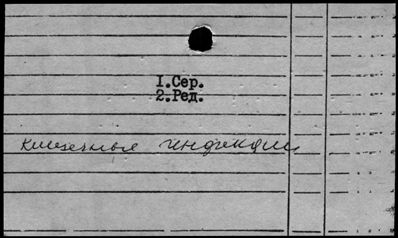 1.Сер.
2.Ред.
Кишечные инфекции